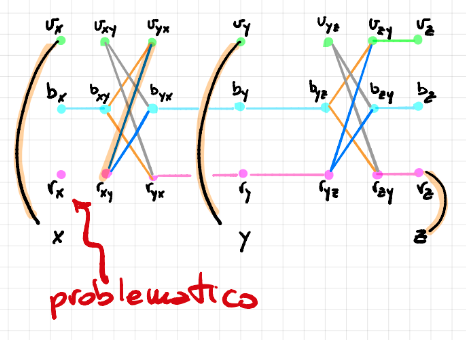 v_x v_xy v_yx v_y v_yz v_zy v_z
b_x b_xy b_yx b_y b_yz b_zy b_z
r_x r_xy r_yx r_y r_yz r_zy r_z
x y z
problematico